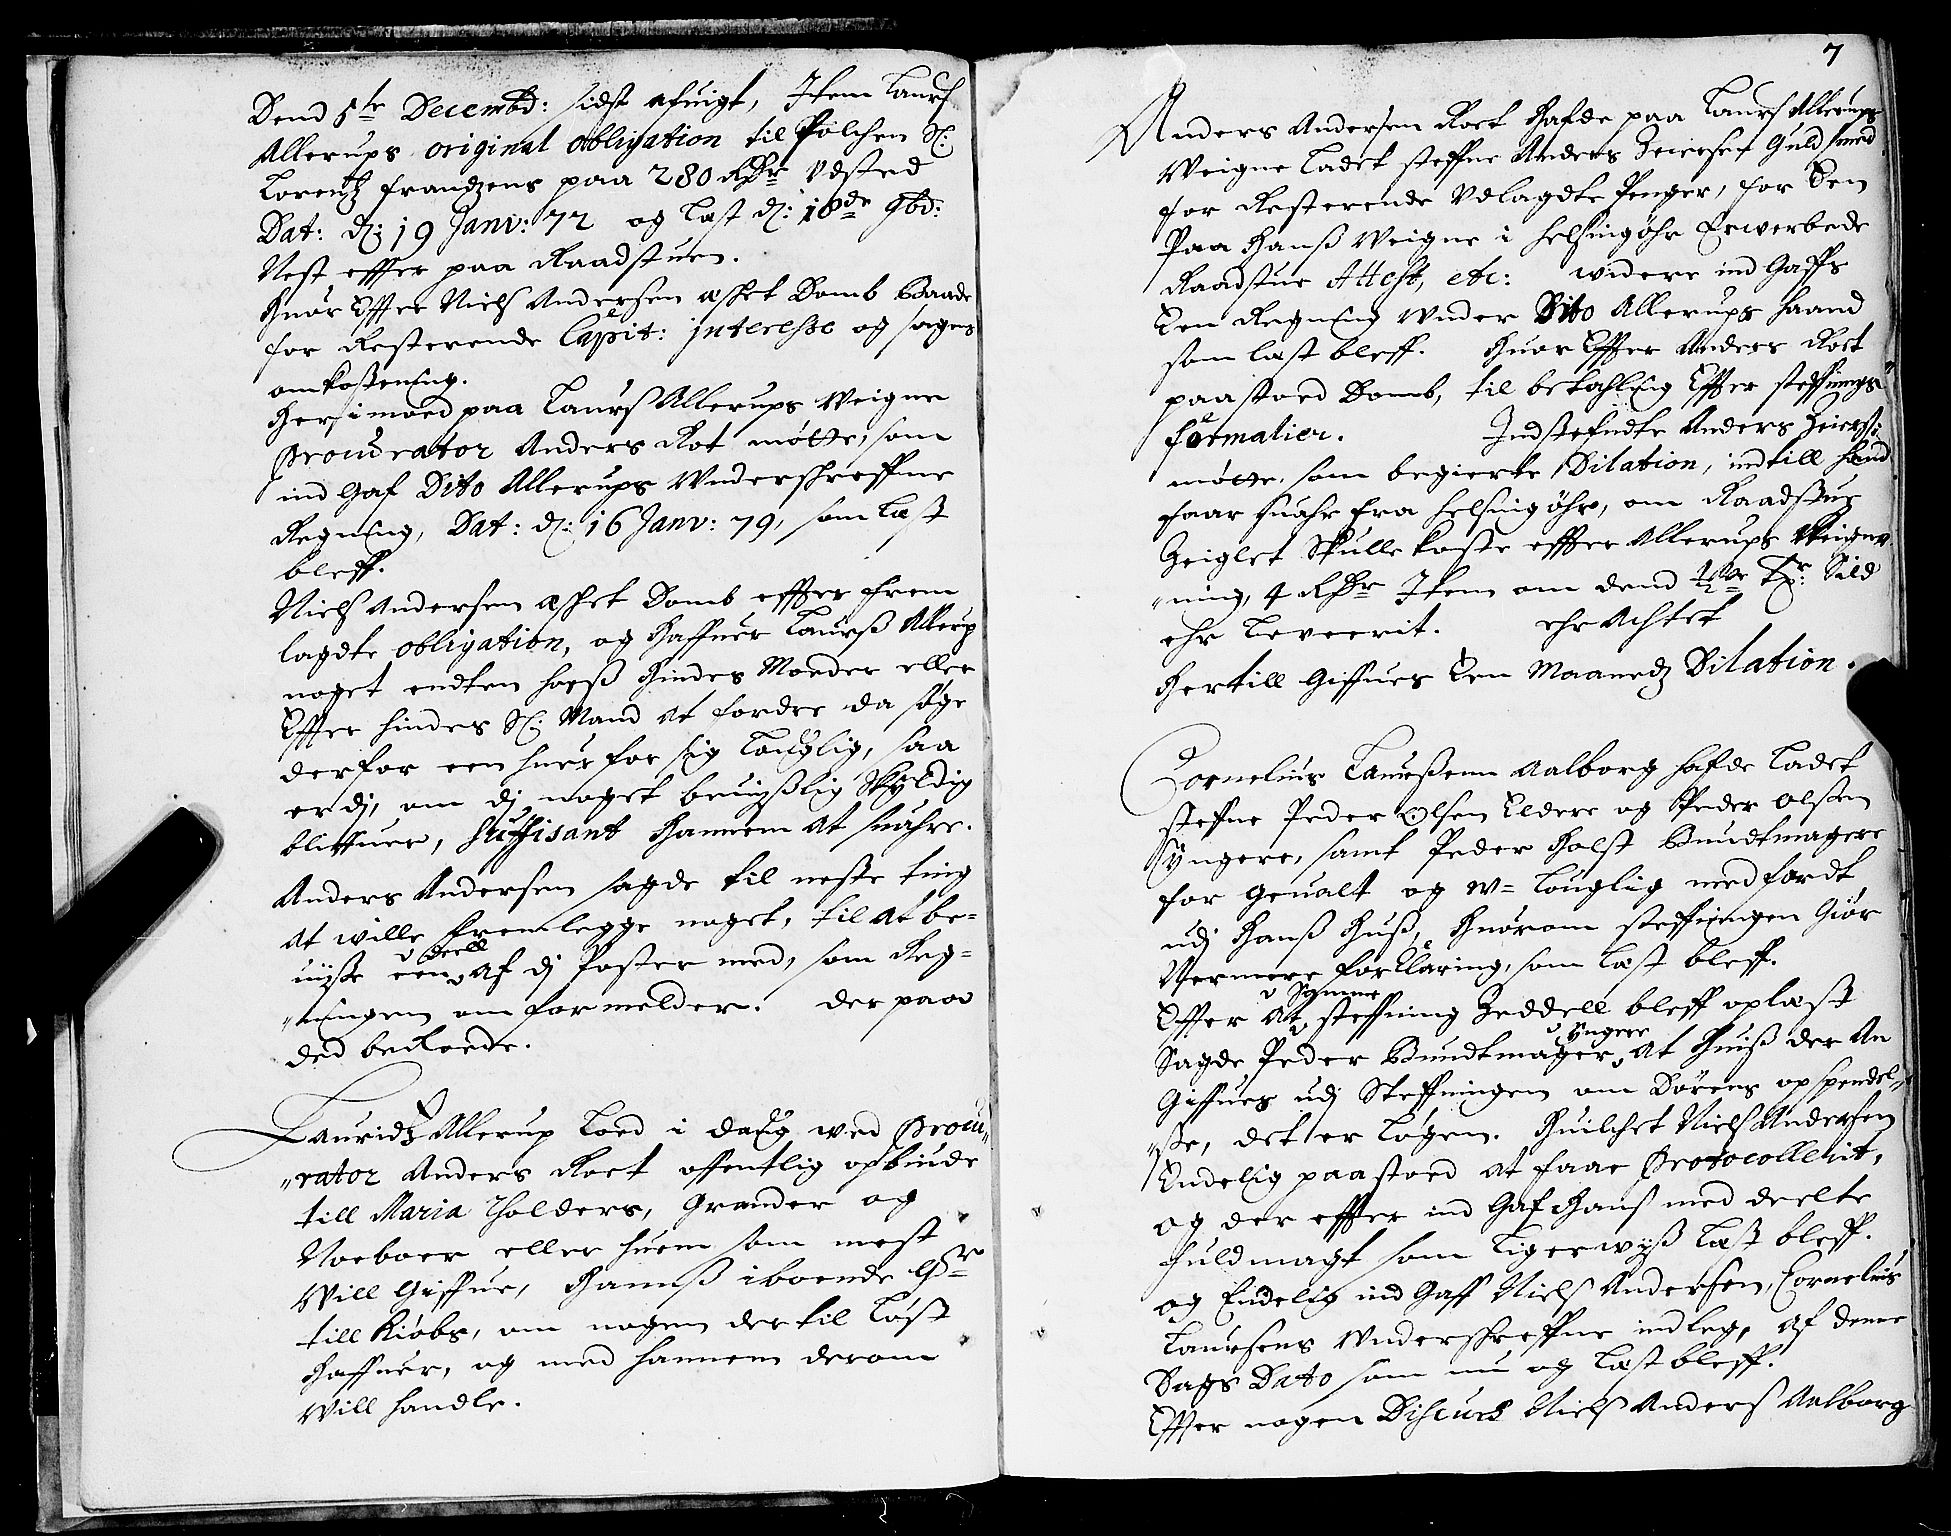 Dend 5te Decembd: sidst afuigt, Item Laurs
Allerups original obligation til Polchen Sl:
Lorentz Frandzens paa 280 Rdr Vdsted
Dat: d: 19 Janv: 72 og læst d: 18de 9bd:
Nest effter paa Raadstuen.
Huor Effter Niels Andersen æsket Domb Baade
for Resterende Capit: interesse og sagens
omkostening.
Her imoed paa Laurs Allerups Weigne
Procurator Anders Rot møtte, som
ind Gaf Dito Allerups Vnderskreffne
Regning, Dat: d: 16 Janv: 79, som læst
bleff.
Niels Andersen æsket Domb effter frem
lagdte obligation, og haffuer Laurs Allerup
noget endten hoes hindes Moeder eller
Effter hindes Sl: Mand at fordre da søge
derfor een huer for sig louglig, saa
er dj, om dj noget beuislig skyldig
bliffuer, suffisant hannem at suahre.
Anders Andersen sagde til neste ting
at wille fremlegge noget, til at be-
uise een deell af dj Poster med, som Reg-
ningen om formelder. der paa
ded beroede.
Lauridtz Allerup loed i daug wed Procu-
rator Anders Roet offentlig opbiude
till Maria Tholders, Grander og
Naboer eller huem som mest
Will Giffue, hanns iboende Gr
till kiøbs, om nogen der til løst
haffuer, og med hannem derom
Will handle.
7
Anders Andersen Roet hafde paa Laurs Allerups
Weigne ladet steffne Anders Zeiersen Guldsmed
for Resterende Vdlagdte Penger, for den
paa hans Weigne i Helsingøhr Erwerbede
Raadstue Attest, etc: widere ind Gaffs
Een Regning under Dito Allerups haand
som læst bleff. Huor Effter Anders Roet
paastoed Domb, til betahling Effter steffnings
formalier. Indstefndte Anders Zeiers:
møtte, som begierte Dilation, indtill hand
faar suahr fra Helsingøhr, om Raadstue
Zeiglet skulle koste effter Allerups Reigne-
ning, 4 Rdr Item om dend 1/2 Tr: Sild
ehr leveerit. ehr Achtet
hertill Giffues Een Maanedz Dilation.
Cornelius Laurssenn Aalborg hafde ladet
stefne Peder Olsen Eldere og Peder Olssen
Yngere, samt Peder Holst Bundtmagere
for Geualt og w- louglig medfardt
udj hans huus, huorom steffningen Giør
Nermere forklaring, som læst bleff.
Effter At samme steffning Zeddell bleff oplæst
Sagde Peder Bundtmager yngere at huis der An
Giffues udj Steffningen om Dørens opspendel-
se, det er løgen. Huilchet Niels Andersen
Endelig paastoed at faae Protocollerit,
og der effter ind Gaf hans med deelte
fuldmagt som ligerwiis læst bleff.
og Endelig ind Gaff Niels Andersen, Cornelius
Laursens Vnderskreffne indleg, af denne
Dags Dato som nu og læst bleff.
Effter nogen Discurs Niels Anders Aalborg